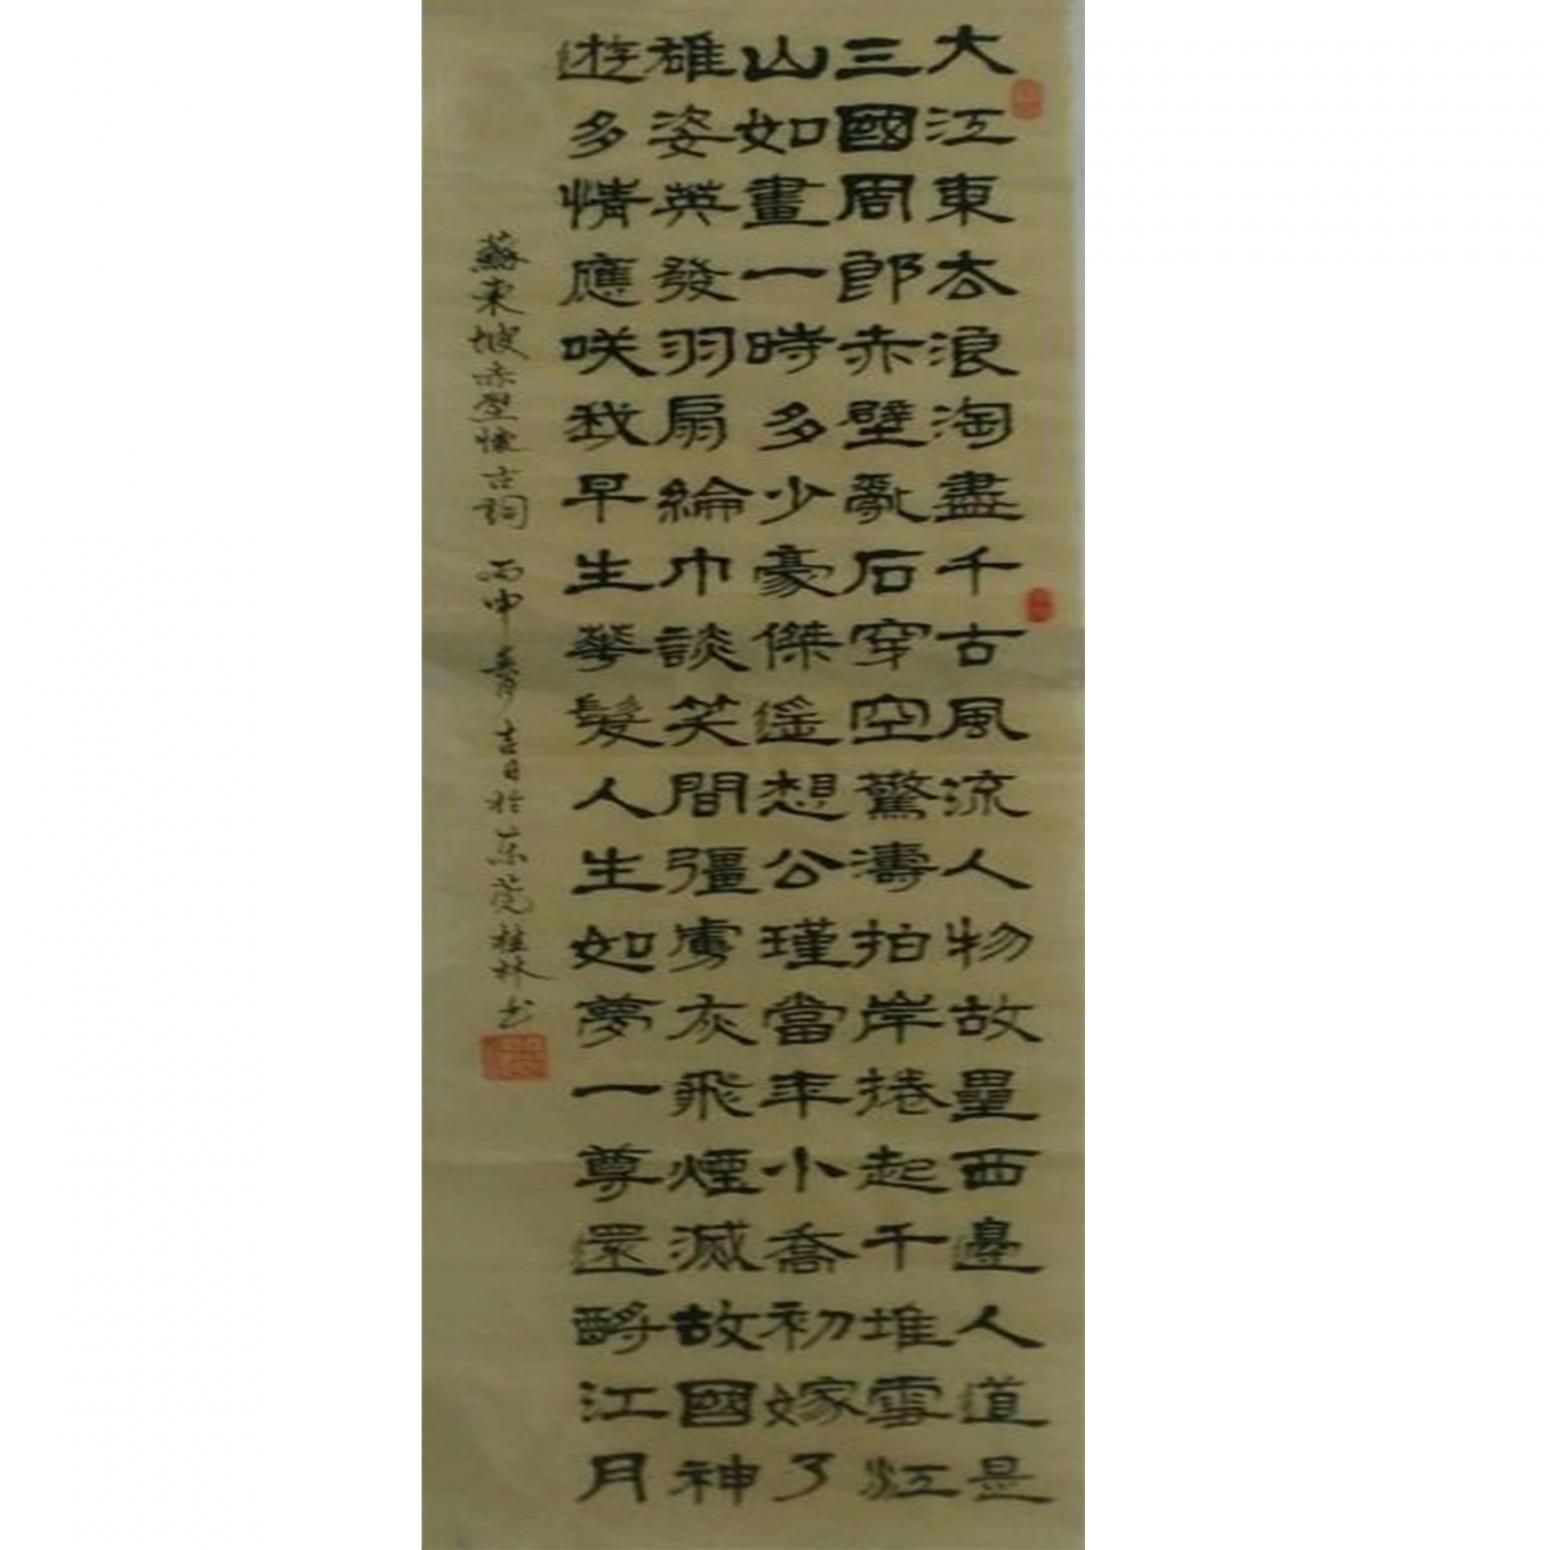 大江東去浪淘盡千古風流人物故壘西邊人道是
三國周郎赤壁亂石穿空驚濤拍岸捲起千堆雪江
山如畫一時多少豪傑遙想公瑾當年小喬初嫁了
雄姿英發羽扇綸巾談笑間彊虜灰飛煙滅故國神
遊多情應咲我早生華髮人生如夢一尊還酹江月
蘇東坡赤壁懷古詞 丙申春月吉日於 桂林书